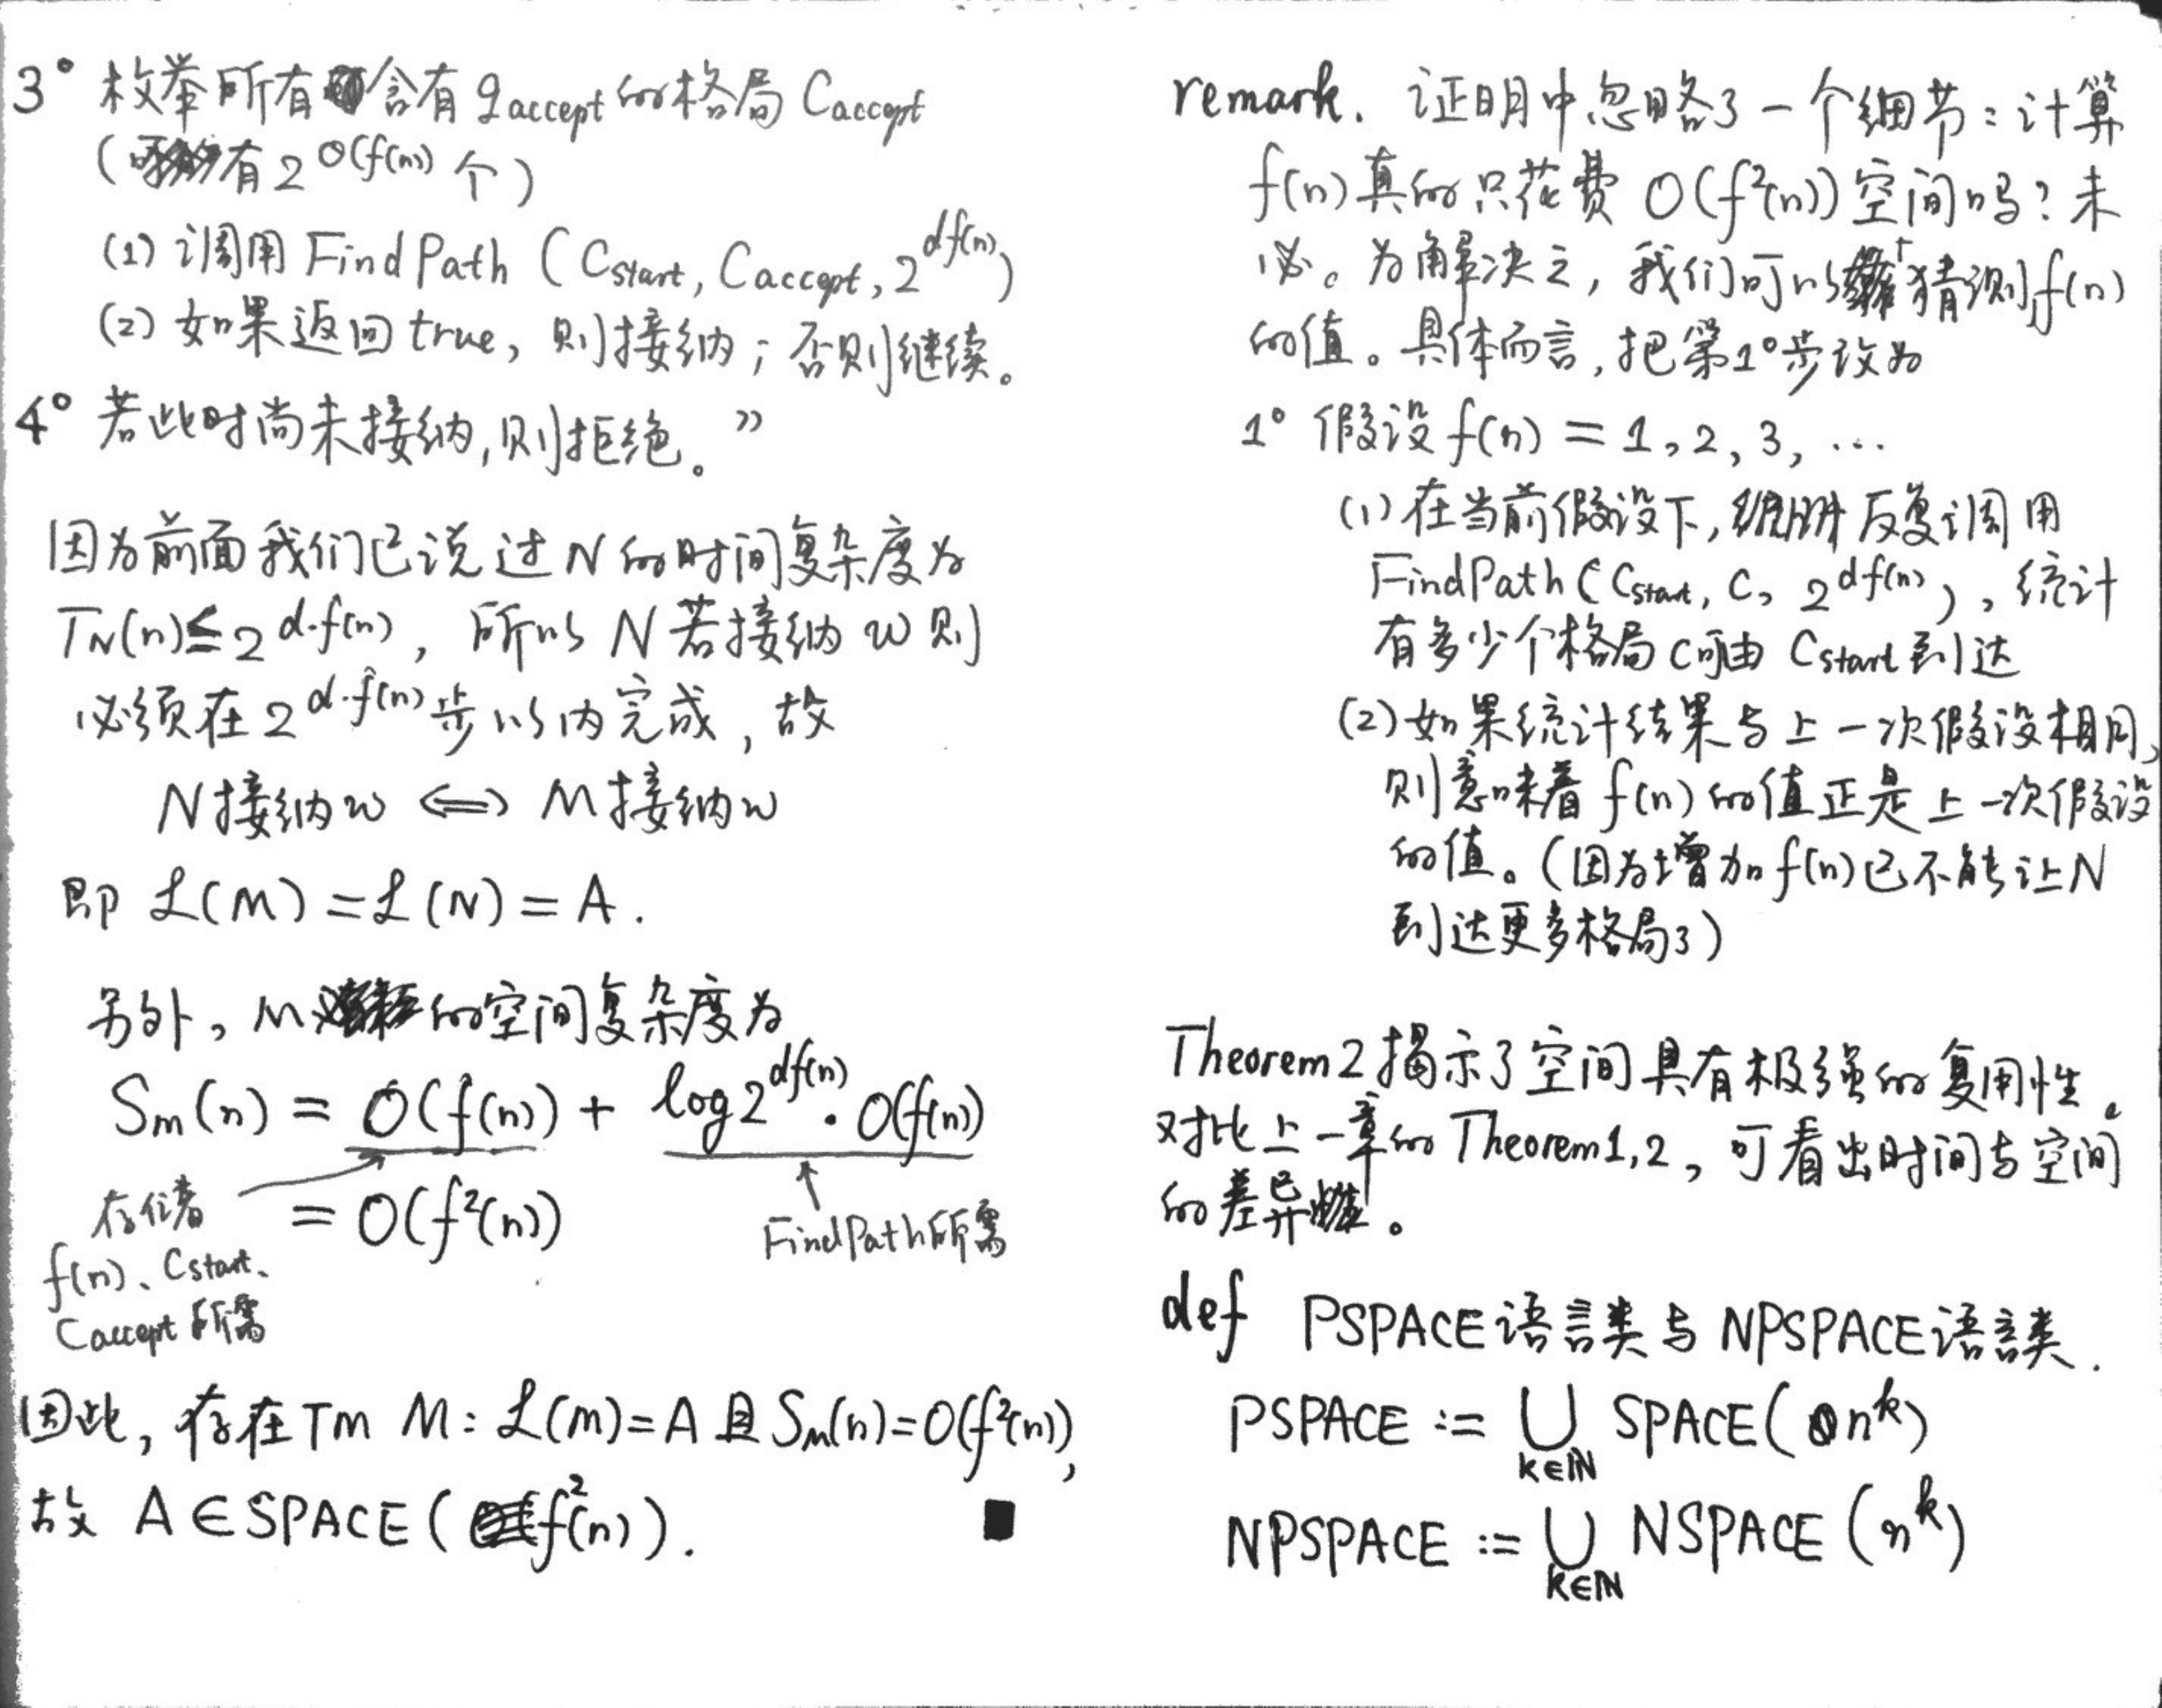 3° 枚举所有含有 qaccept 的格局 Caccept
(有 2^O(f(n)) 个)
(1) 调用 FindPath (Cstart, Caccept, 2^df(n))
(2) 如果返回 true, 则接纳; 否则继续。
4° 若此时尚未接纳, 则拒绝。"
因为前面我们已说过 N 的时间复杂度为
TN(n) ≤ 2^d·f(n), 所以 N 若接纳 w 则
必须在 2^d·f(n) 步以内完成, 故
N 接纳 w ⟺ M 接纳 w
即 ℒ(M) = ℒ(N) = A.
另外, M 的空间复杂度为
SM(n) = O(f(n)) + log2^df(n) · O(f(n))
存储
f(n)、Cstart、
Caccept 所需
= O(f²(n))
FindPath 所需
因此, 存在 TM M: ℒ(M) = A 且 SM(n) = O(f²(n)),
故 A ∈ SPACE(f²(n)). ■
remark. 证明中忽略了一个细节: 计算
f(n) 真的只花费 O(f²(n)) 空间吗? 未
必。为解决之, 我们可以猜测 f(n)
的值。具体而言, 把第 1° 步改为
1° 假设 f(n) = 1, 2, 3, ...
(1) 在当前假设下, 反复调用
FindPath (Cstart, C, 2^df(n)), 统计
有多少个格局 C 可由 Cstart 到达
(2) 如果统计结果与上一次假设相同,
则意味着 f(n) 的值正是上一次假设
的值。(因为增加 f(n) 已不能让 N
到达更多格局了)
Theorem 2 揭示了空间具有极强的复用性。
对比上一章的 Theorem 1, 2, 可看出时间与空间
的差异。
def PSPACE 语言类与 NPSPACE 语言类.
PSPACE := ⋃ k∈ℕ SPACE(n^k)
NPSPACE := ⋃ k∈ℕ NSPACE(n^k)